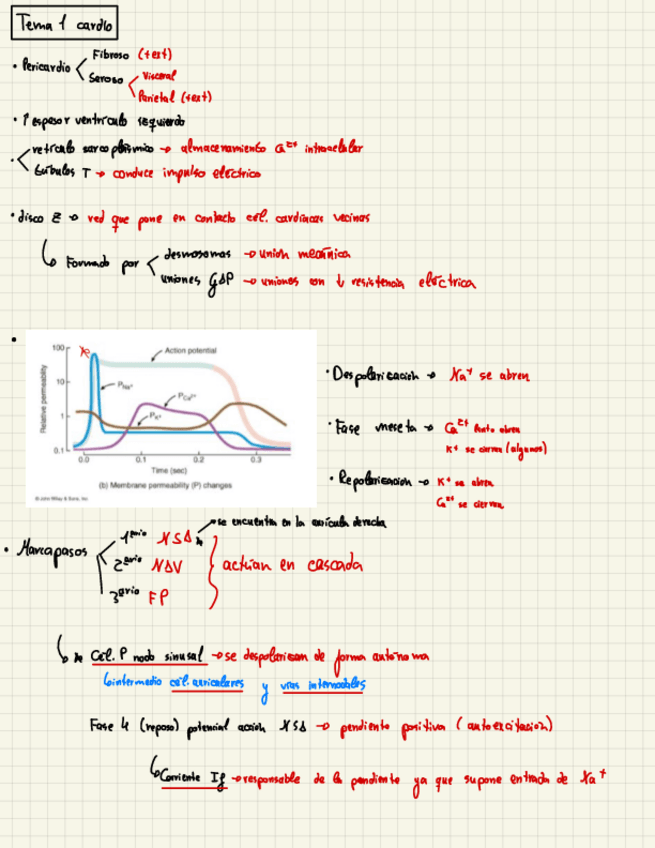 Tema 1 cardio
• Pericardio
Fibroso (+ext)
Seroso
Visceral
Parietal (+ext)
• ↑ espesor ventrículo izquierdo
• retículo sarcoplásmico → almacenamiento Ca2+ intracelular
túbulos T → conduce impulso eléctrico
• disco Z → red que pone en contacto cél. cardíacas vecinas
Formado por
desmosomas → unión mecánica
uniones GAP → uniones con ↓ resistencia eléctrica
Relative permeability
100
10
1
0.1
Action potential
PNa+
PCa2+
PK+
0.0 0.1 0.2 0.3
Time (sec)
(b) Membrane permeability (P) changes
© John Wiley & Sons, Inc.
• Despolarización → Na+ se abren
• Fase meseta → Ca2+ lento abren
K+ se cierran (algunos)
• Repolarización → K+ se abren
Ca2+ se cierran
se encuentra en la aurícula derecha
• Marcapasos
1ario NSA *
2ario NAV
3ario FP
actúan en cascada
* Cél. P nodo sinusal → se despolarizan de forma autónoma
intermedio cél. auriculares y vías internodales
Fase 4 (reposo) potencial acción NSA → pendiente positiva (autoexcitación)
Corriente If → responsable de la pendiente ya que supone entrada de Na+